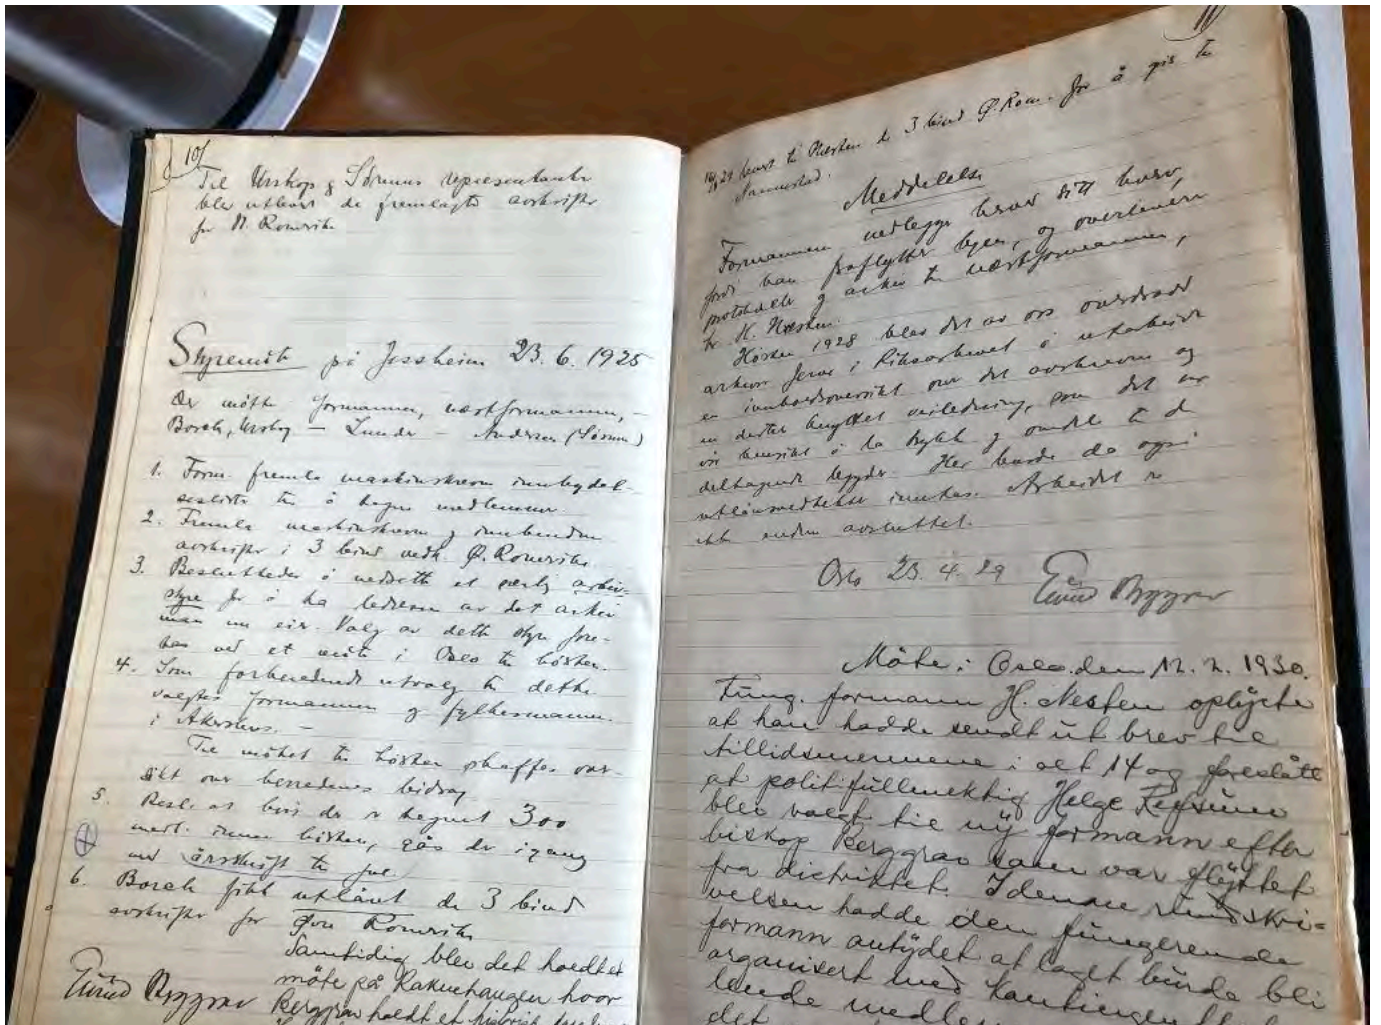 10/
Til Urskog & Sörums representanter
blev utlånt de fremlagte avskrifter
for N. Romerike
Styremöte på Jessheim 23. 6. 1928
Der mötte formannen, næstformannen, –
Borch, Urskog – Lunder – Andersen (Sörum)
1. Form. fremla maskinskreven innbydel-
seslister til å tegne medlemmer.
2. Fremla maskinskrevne g innbundne
avskrifter i 3 bind vedk. Ö. Romerike
3. Besluttedes å nedsette et særlig arkiv-
styre for å ha ledelsen av det arkiv
man nu eier. Valg av dette styre fore-
tas ved et möte i Oslo til hösten.
4. Som forberedende utvalg til dette
valgtes formannen og fylkesmannen
i Akershus. –
Til mötet til hösten skaffes over-
sikt over herredenes bidrag
5. Besl. at hvis der er tegnet 300
medl. innen hösten, gås der igang
med årsskrift til jul.
6. Borch fikk utlånt de 3 bind
avskrifter for Övre Romerike
Eivind Berggrav
Samtidig blev det holdt et
möte på Raknehaugen hvor
Berggrav holdt et historisk
11
29 lånt til Næsten de 3 bind Ö. Rom. for å gis til
Nannestad.
Meddelelse
Formannen nedlegger herved sitt hverv,
fordi han fraflytter byen, og overleverer
protokoll g arkiv til næstformannen,
hr. H. Næsten.
Hösten 1928 blev det av oss overdradd
arkivar i Riksarkivet å utarbeide
en innholdsoversikt over det avskrevne og
en dertil knyttet veiledning, som det var
vår hensikt å la trykke g omdele til de
deltagende bygder. Her burde da også
utlånsvedtekter inntas. Arbeidet er
ikke enda avsluttet.
Oslo 23. 4. 29 Eivind Berggrav
Möte i Oslo den 12. 2. 1930.
Fung. formann H. Nesten oplyste
at han hadde sendt ut brev til
tillidsmennene i alt 14 og foreslått
at politifullmektig Helge Refsum
blev valgt til ny formann efter
biskop Berggrav som var flyttet
fra distriktet. I denne rundskri-
velsen hadde den fungerende
formann antydet at laget burde bli
organisert med kontingentbeta-
lende medlem
det